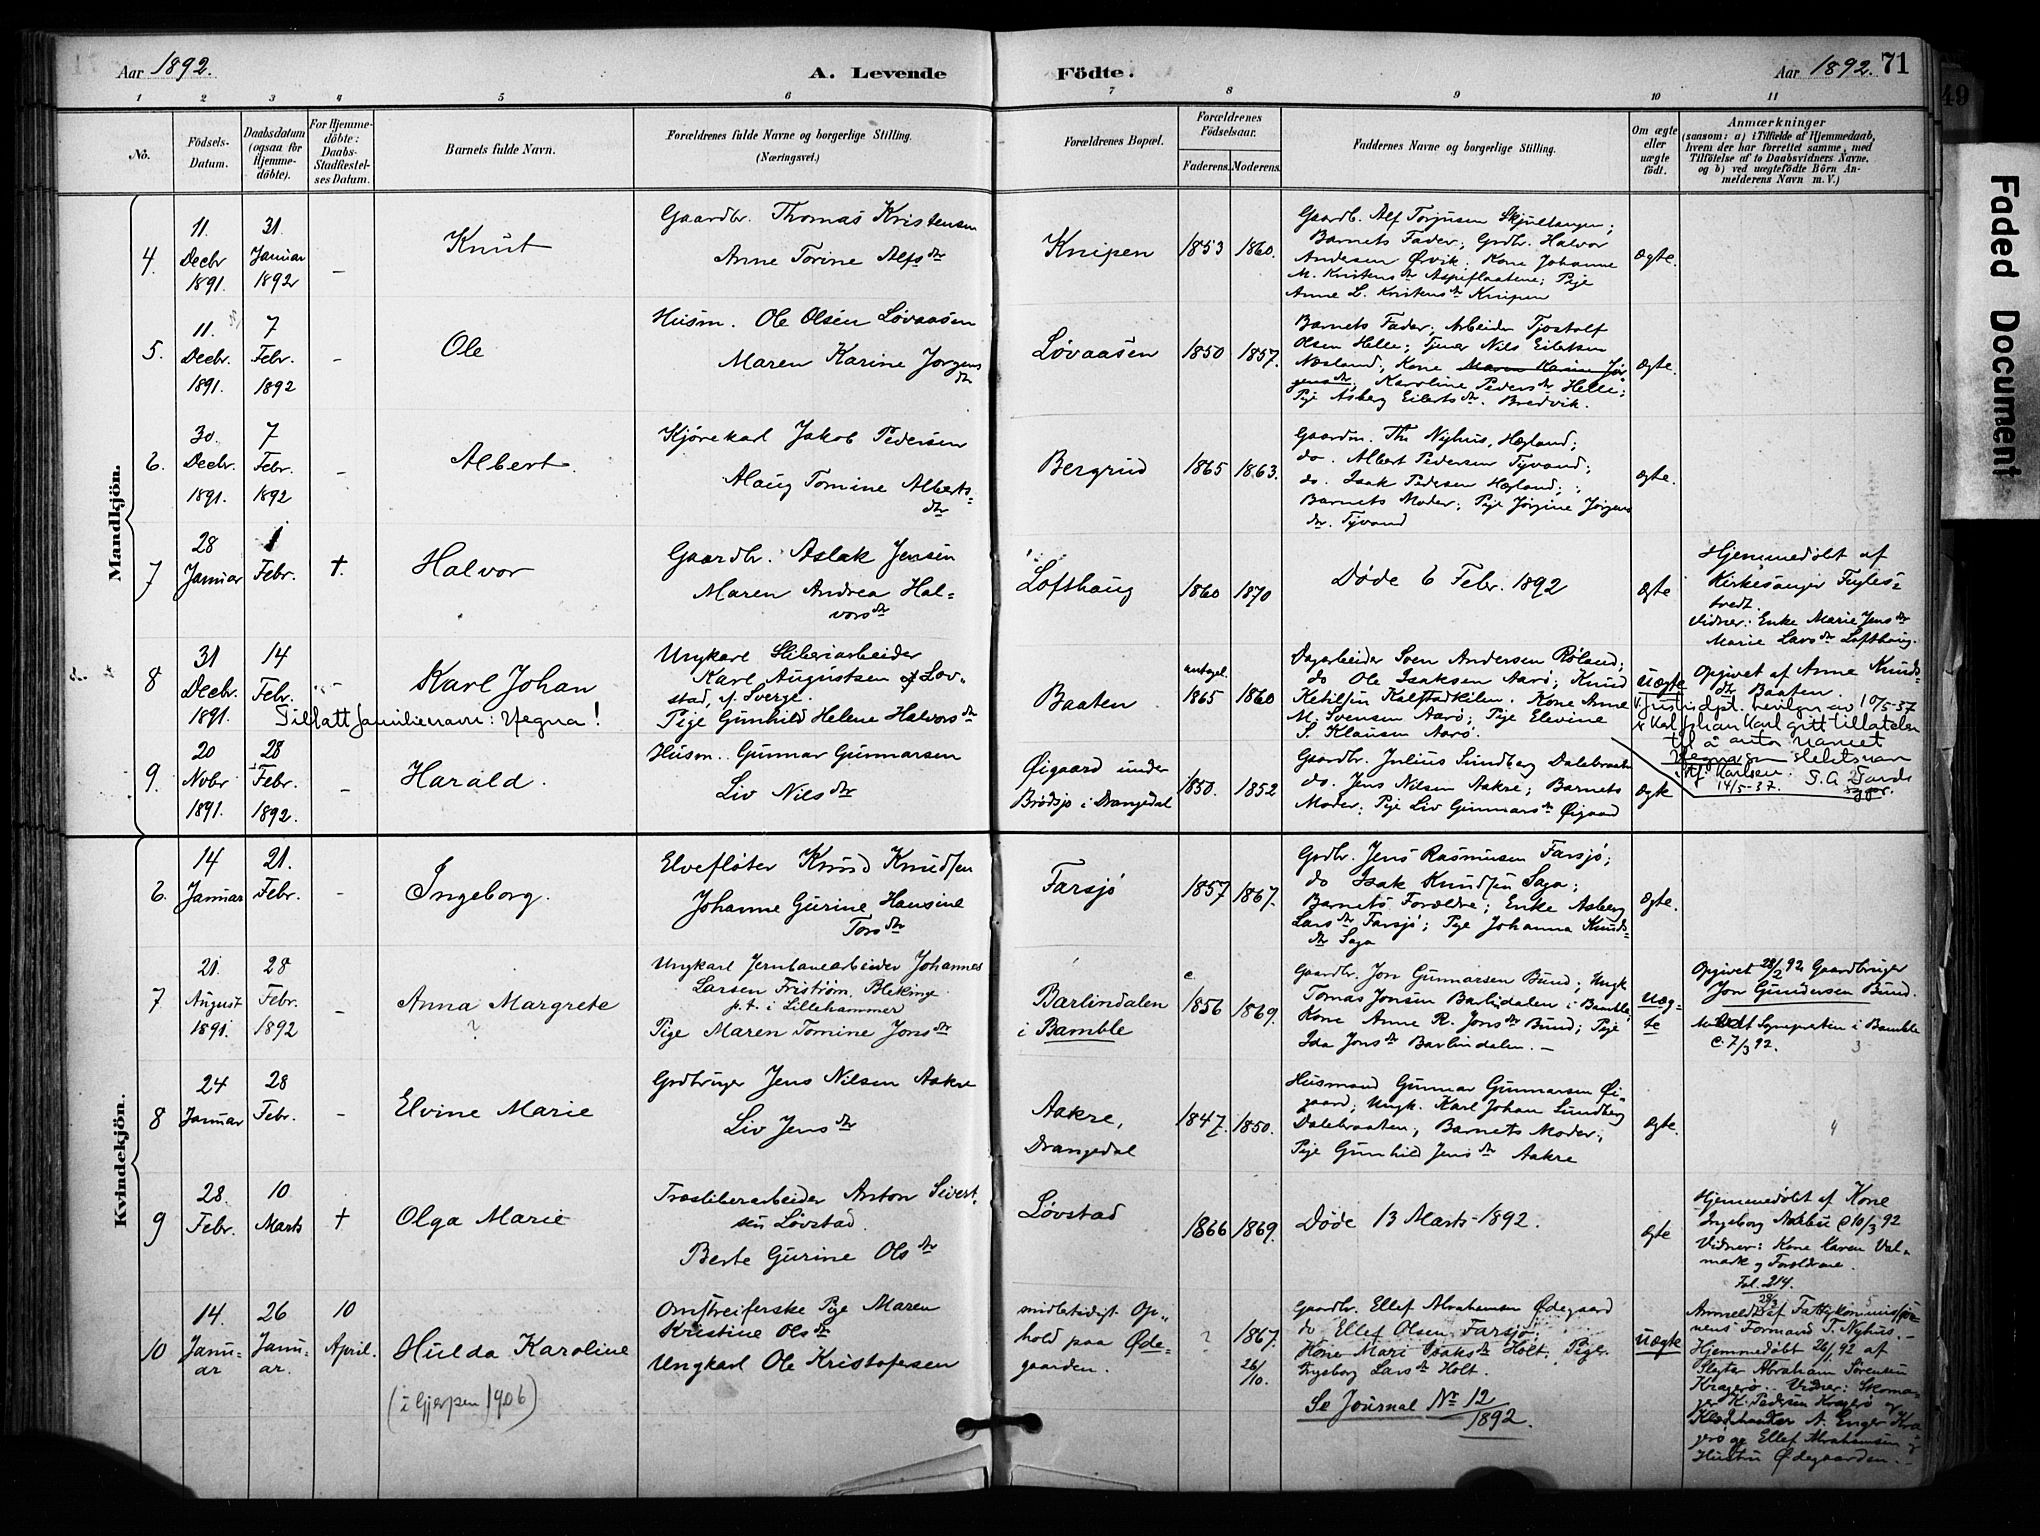 Aar 1892.
A. Levende Födte.
Aar 1892. 71
49
Faded Document
1 2 3 4 5 6 7 8 9 10 11
No.
Födsels-
Datum.
Daabsdatum
(ogsaa for
Hjemme-
döbte).
For Hjemme-
döbte:
Daabs-
Stadfæstel-
ses Datum.
Barnets fulde Navn.
Forældrenes fulde Navne og borgerlige Stilling.
(Næringsvei.)
Forældrenes Bopæl.
Forældrenes
Födselsaar.
Faderens. Moderens.
Faddernes Navne og borgerlige Stilling.
Om ægte
eller
uægte
födt.
Anmærkninger
(saasom: a) i Tilfælde af Hjemmedaab,
hvem der har forrettet samme, med
Tilföielse af to Daabsvidners Navne.
og b) ved uægtefödte Börn An-
melderens Navn m. V.)
Mandkjön.
4.
11.
Decbr
1891.
31.
Januar
1892
–
Knut
Gaardbr. Thomas Kristensen
Anne Torine Alfsdtr
Knipen
1853
1860.
Gaardb. Alf Torjusen
Barnets Fader; Grdbr. Halvor
Andersen Ørvik; Kone Johanne
M. Kristensdtr Aspeflaatene; Pige
Anne L. Kristensdtr Knipen
Ægte.
5.
11.
Decbr.
1891.
7
Febr.
1892
–
Ole
Husm. Ole Olsen Løvaasen
Maren Karine Jørgens
dtr
Løvaasen
1850
1857.
Barnets Fader; Arbeider Tjostolf
Olsen Helle; Tjener Nils Eileksen
Næsland; Kone Maren Karine Jør
gensdtr; Karoline Pedersdtr Helle;
Pige Asberg Eilertsdtr. Bredvik.
Ægte.
6.
30.
Decbr.
1891.
7
Febr.
1892
–
Albert.
Kjørekarl Jakob Pedersen
Alaug Tomine Alberts-
dtr
Bergrud
1865
1863.
Gaardm. Th. Nyhus, Hægland;
do. Albert Pedersen Tyvand;
do. Isak Pedersen Hægland;
Barnets Moder; Pige Jørgine Jørgens
dtr. Tyvand
Ægte.
7
28
Januar
1
Febr.
†.
Halvor
Gaardbr. Aslak Jensen
Maren Andrea Hal-
vorsdtr
Lofthaug
1860
1870
Døde 6 Febr. 1892
Ægte
Hjemmedøbt af
Kirkesanger Fugles-
tvedt.
Vidner: Enke Marie Jensdtr
Marie Larsdtr Lofthaug.
8
31
Decbr.
1891.
14
Febr.
–
Karl Johan
Tillatt familienavn: Hegna!
Ungkarl Sliberiarbeider
Karl Augustsen af Løv-
stad, af Sverge.
Pige Gunhild Helene Halvorsdtr
Baaten
antagel.
1865
1860
Dagarbeider Sven Andersen Røland;
do Ole Isaksen Aarø; Knud
Ketilsen Kalstadkilen. Kone Anne
M. Svensen Aarø; Pige Elevine
S. Klausen Aarø.
uægte
Opgivet af Anne Knuds-
dtr Baaten.
V. Justisdpt. bevilgn av 10/5-37
er Karl Johan Karl gitt tillatelse
til å anta navnet
14/5-37.
9.
20
Novbr
1891.
28
Febr.
1892.
–
Harald.
Husm. Gunnar Gunnarsen
Liv Nilsdtr
Øigaard under
Brødsjø i Drangedal
1850.
1852
Gaardbr. Julius Sundberg Dalebraaten
do. Jens Nilsen Aakre; Barnets
Moder; Pige Liv Gunnarsdtr Øigaard
Ægte
Kvindekjön.
6.
14
Januar
21.
Febr.
–
Ingeborg.
Elvefløter Knud Knudsen
Johanne Gurine Hansine
Torsdtr
Farsjø
1857
1867.
Grdbr. Jens Rasmusen Farsjø;
do Isak Knudsen Saga;
Barnets Forældre; Enke Asberg
Larsdtr Farsjø; Pige Johanna Knuds-
dtr Saga
Ægte.
7
21.
August
1891.
28
Febr.
1892
–
Anna Margrete
?
Ungkarl Jernbanearbeider Johannes
Larsen Friström, Blekinge.
p.t. i Lillehammer
Pige Maren Tomine Jonsdtr
Barlindalen
i Bamble
c.
1856
1869.
Gaardbr. Jon Gunnarsen Bund; Ungk
Tomas Jonsen Barlidalen i Bamble;
Kone Anne R. Jonsdtr Bund; Pige
Ida Jonsdtr Barlindalen. –
uæg-
te
Opgivet 28/2 92 Gaardbruger
Jon Gundersen Bund.
Sognpresten i Bamble
c. 7/3 92.
3
8
24
Januar
28
Febr.
–
Elvine Marie
Grdbruger Jens Nilsen Aakre
Liv Jensdtr
Aakre,
Drangedal
1847.
1850.
Husmand Gunnar Gunnarsen Øi-
gaard; Ungk. Karl Johan Sundberg
Dalebraaten; Barnets Moder;
Pige Gunhild Jensdtr Aakre
Ægte.
4
9
28.
Febr.
10
Marts
†
Olga Marie
Træsliberarbeider Anton Sivert-
sen Løvstad.
Berte Gurine Olsdtr
Løvstad
1866
1869.
Døde 13 Marts 1892.
Ægte
Hjemmedøbt af Kone
Ingeborg 10/3 92
Vidner: Kone Karen Val-
mark og Forældrene.
Fol. 214.
10
14.
Janu-
ar
26
Janu-
ar.
10
April.
Hulda Karoline
(i Gjerpen 1906)
Omstreiferske Pige Maren
Kristine Olsdtr
Ungkarl Ole Kristofersen
midlertidigt Op-
hold paa Øde-
gaarden.
?
1867.
26/10.
Gaardbr. Ellef Abrahamsen Ødegaard
do Ellef Olsen Farsjø;
Kone Mari Isaksdtr Holt; Pige
Ingeborg Larsdtr Holt.
Se Journal No 12/1892.
uægte
Anmeldt 28/2 af Fattigkommissio-
nens Formand T. Nyhus. –
Hjemmedøbt 26/1 92 af
Slagter Abraham Sørensen
Kragerø. Vidner: Skoma-
ger K. Pedersen Kragerø og
A. Enger Kra
gerø og Ellef Abrahamsen og
Hustru Ødegaarden. –